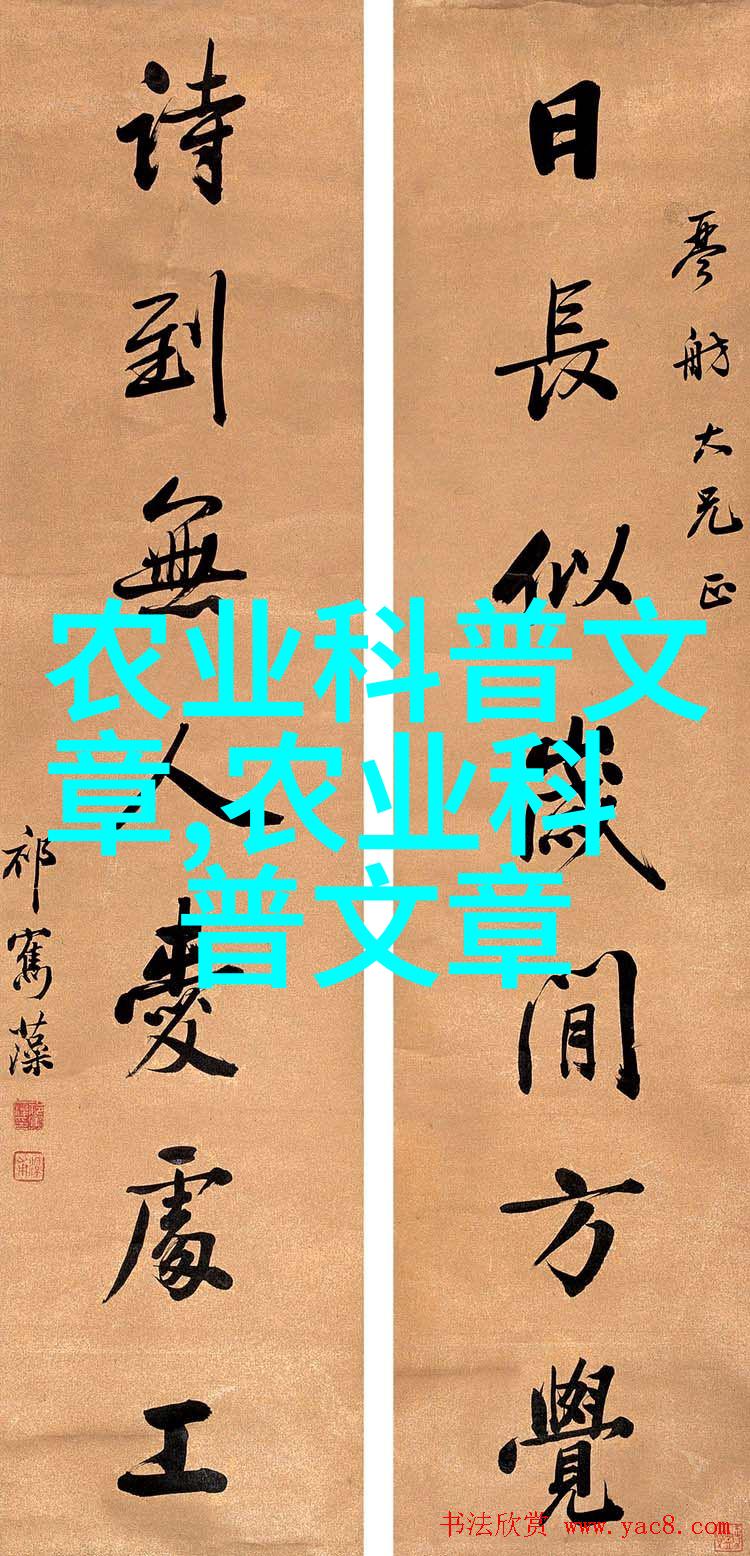 琴舫大兄正
日長似歲閒方覺
詩到無人愛處工
祁寯藻
农业科普文
章,农业科
普文章
书法欣赏 www.yac8.com